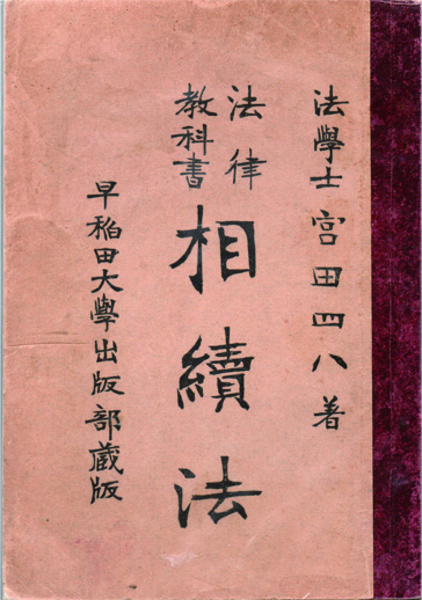 法學士宮田四八著
法律
教科書
相續法
早稲田大學出版部蔵版